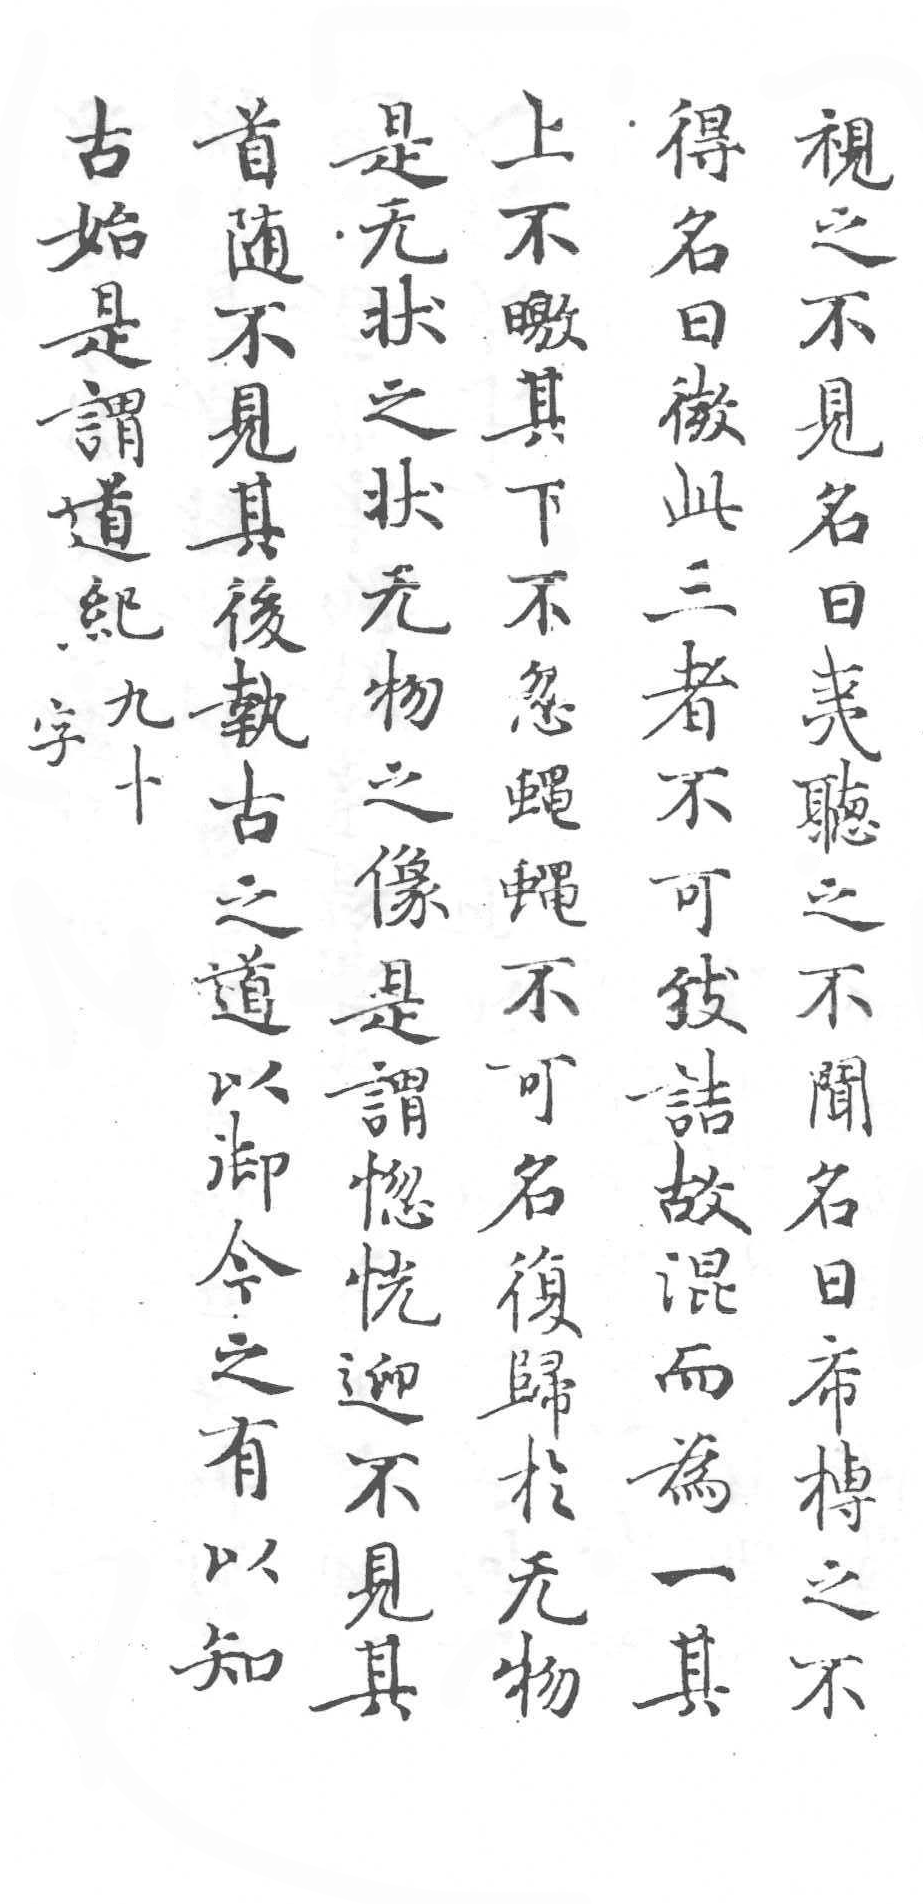 視之不見名曰夷聽之不聞名曰希搏之不
得名曰微此三者不可致詰故混而為一其
上不曒其下不忽蝇蝇不可名復歸於无物
是无狀之狀无物之像是謂惚恍迎不見其
首随不見其後執古之道以御今之有以知
古始是謂道紀
九十
字